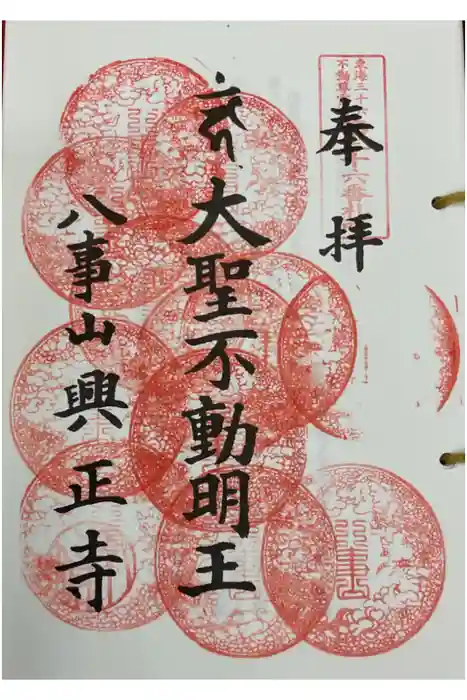 奉拝
東海三十六
不動尊
十六番
大聖不動明王
八事山興正寺